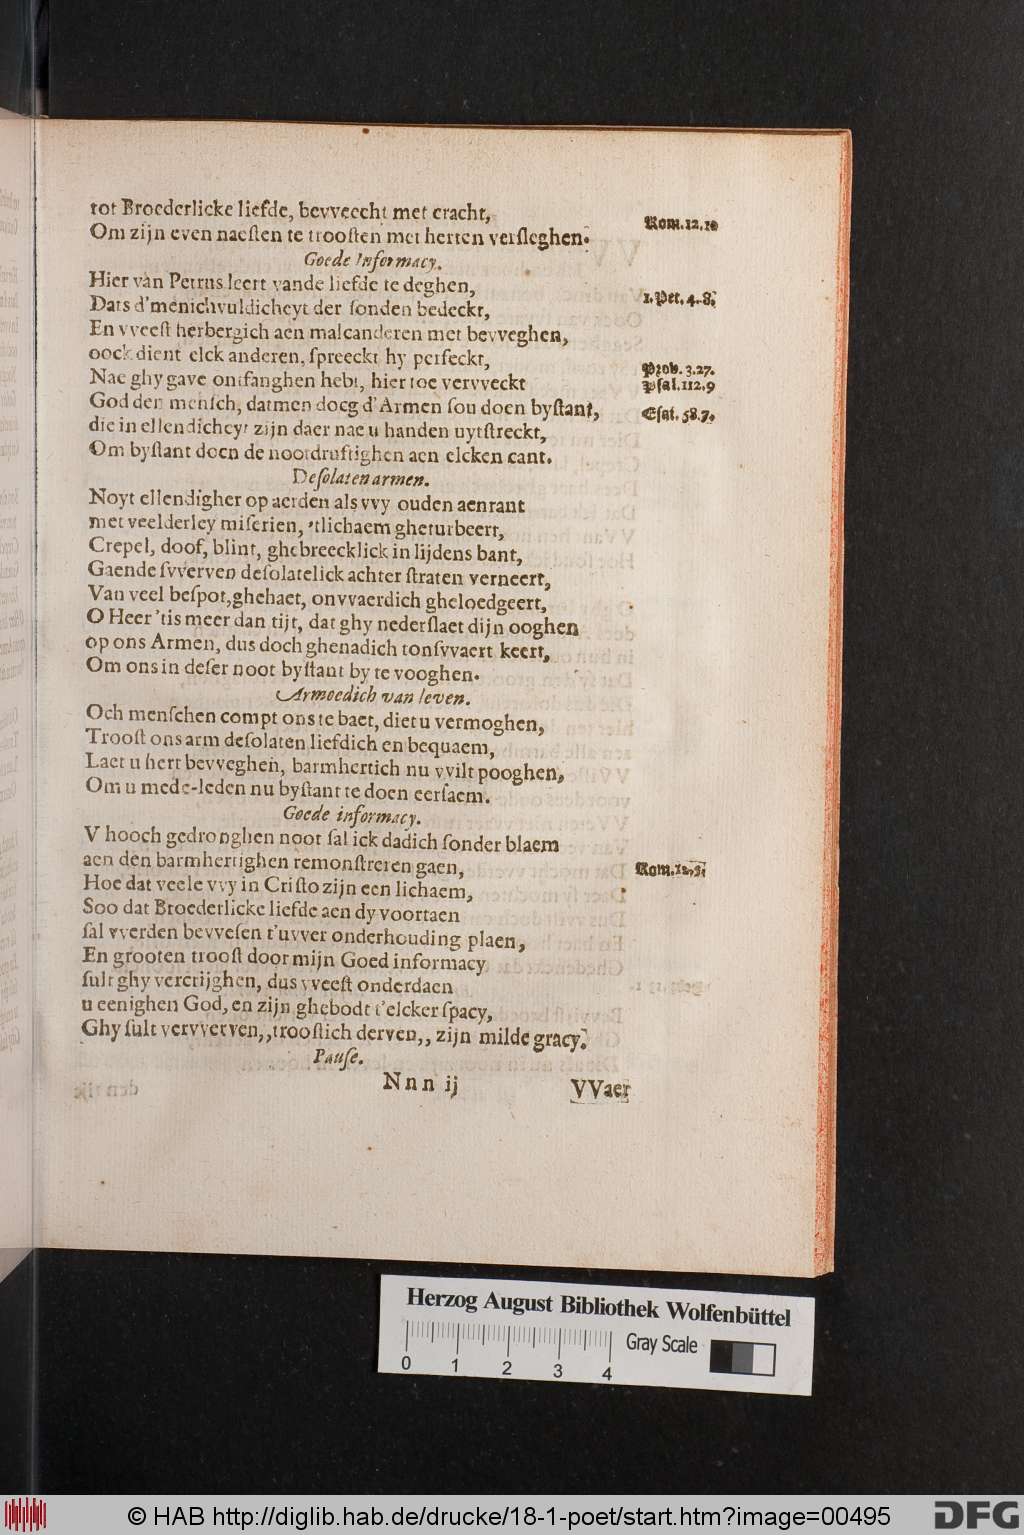 tot Broederlicke liefde, bevveecht met cracht,
Om zijn even naeſten te trooſten met herten verſleghen.
Rom.12.10
Goede Informacy.
Hier van Petrus leert vande liefde te deghen,
Dats d'menichvuldicheyt der ſonden bedeckt,
1.Pet.4.8.
En vveeſt herbergich aen malcanderen met bevveghen,
oock dient elck anderen, ſpreeckt hy perfeckt,
Nae ghy gave ontfanghen hebt, hier toe vervveckt
Prob. 3.27.
Pſal.112.9
God den menſch, datmen doeg d'Armen ſou doen byſtant,
Eſai. 58.7.
die in ellendicheyt zijn daer nae u handen uytſtreckt,
Om byſtant doen de nootdruftighen aen elcken cant.
Deſolaten armen.
Noyt ellendigher op aerden als vvy ouden aenrant
met veelderley miſerien, 'tlichaem gheturbeert,
Crepel, doof, blint, ghebreecklick in lijdens bant,
Gaende ſvverven deſolatelick achter ſtraten verneert,
Van veel beſpot, ghehaet, onvvaerdich gheloedgeert,
O Heer 'tis meer dan tijt, dat ghy nederſlaet dijn ooghen
op ons Armen, dus doch ghenadich tonſvvaert keert,
Om ons in deſer noot byſtant by te vooghen.
Armoedich van leven.
Och menſchen compt ons te baet, diet u vermoghen,
Trooſt ons arm deſolaten liefdich en bequaem,
Laet u hert bevveghen, barmhertich nu vvilt pooghen,
Om u mede-leden nu byſtant te doen eerſaem.
Goede informacy.
V hooch gedronghen noot ſal ick dadich ſonder blaem
aen den barmhertighen remonſtreren gaen,
Hoe dat veele vvy in Criſto zijn een lichaem,
Rom.12.5.
Soo dat Broederlicke liefde aen dy voortaen
ſal vverden bevveſen t'uvver onderhouding plaen,
En grooten trooſt door mijn Goed informacy
ſult ghy vercrijghen, dus vveeſt onderdaen
u eenighen God, en zijn ghebodt t'elcker ſpacy,
Ghy ſult vervverven,, trooſtich derven,, zijn milde gracy.
Pauſe.
Nnn ij
VVaer
Herzog August Bibliothek Wolfenbüttel
Gray Scale
0 1 2 3 4
© HAB http://diglib.hab.de/drucke/18-1-poet/start.htm?image=00495
DFG